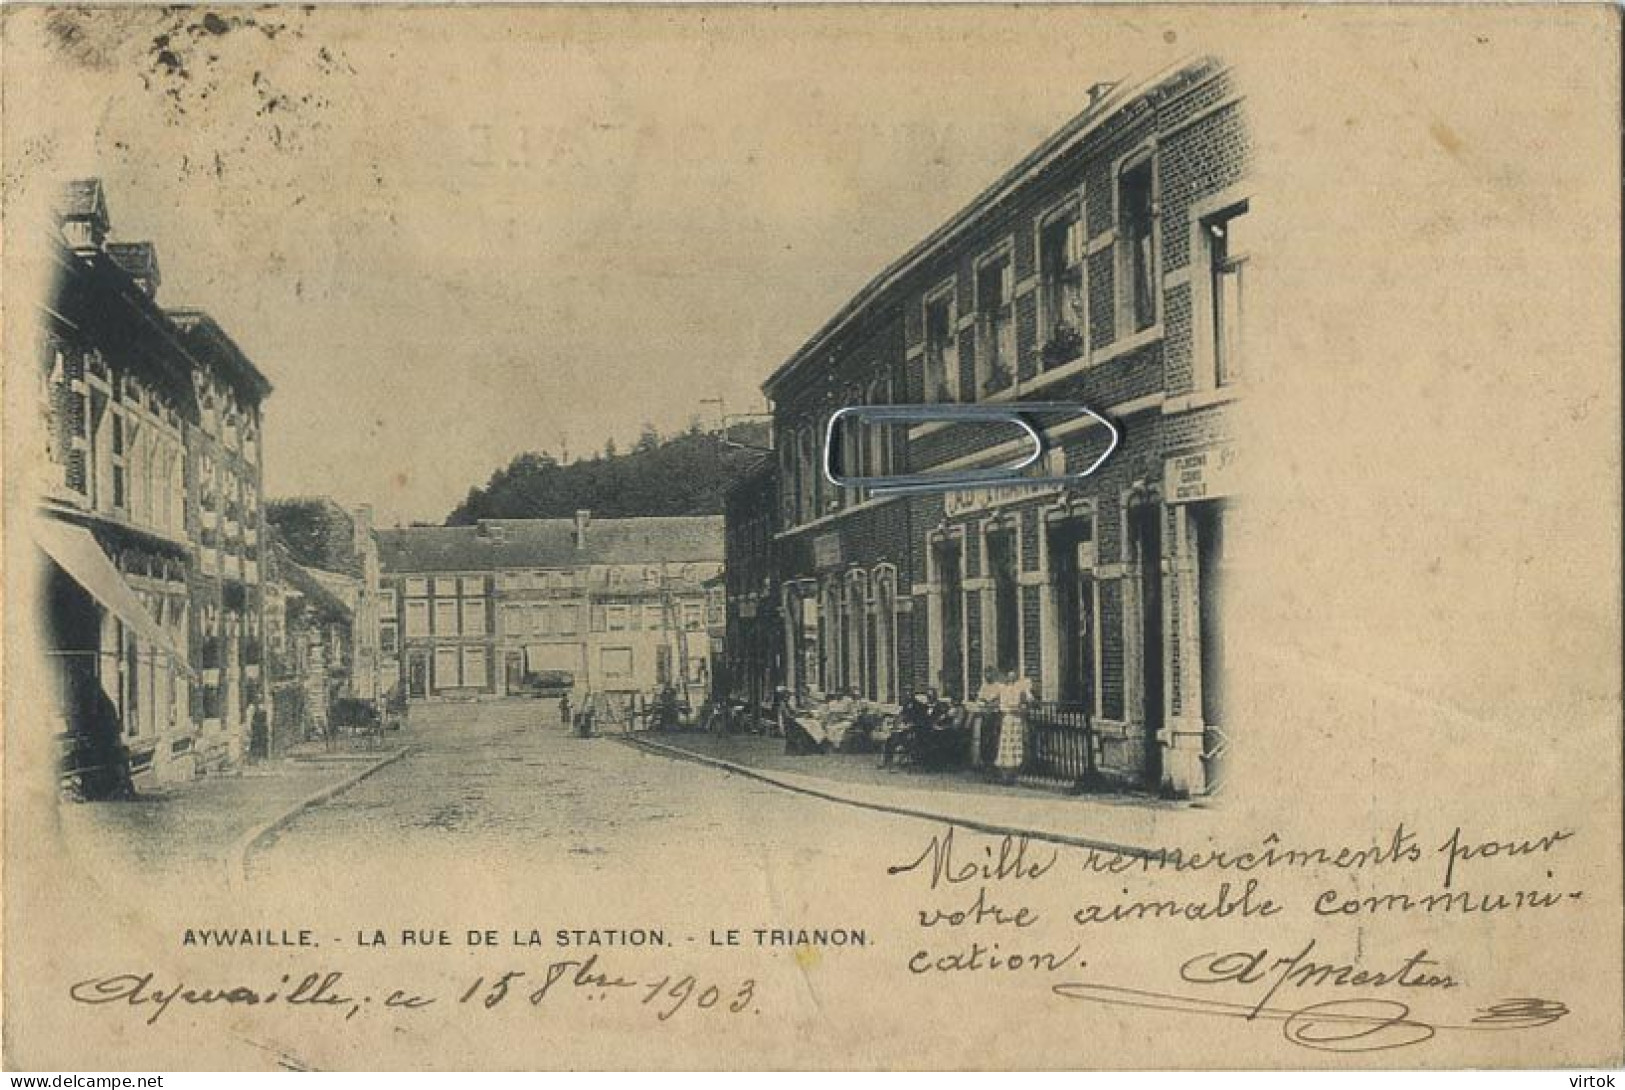 AU TRIANON
AYWAILLE. - LA RUE DE LA STATION. - LE TRIANON.
Mille remercîments pour
votre aimable communi-
cation.
Aywaille, ce 15 8bre 1903.
delcampe.net
virtok